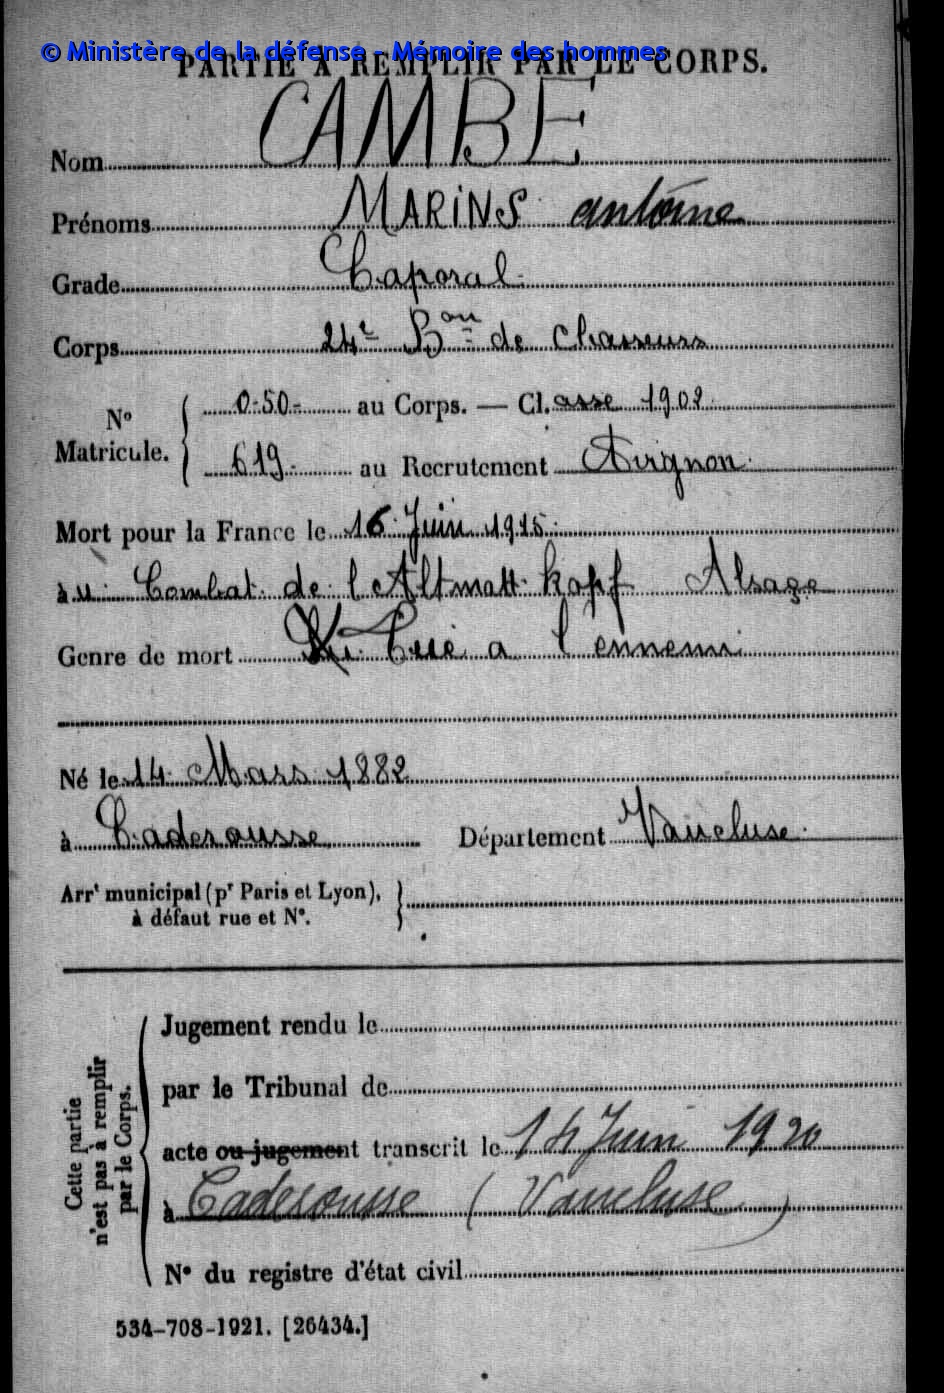 © Ministère de la défense - Mémoire des hommes
PARTIE À REMPLIR PAR LE CORPS.
Nom CAMBE
Prénoms MARINS antoine
Grade Caporal
Corps 24e Bon de Chasseurs
No Matricule. 0-50- au Corps. — Cl. asse 1902
619 - au Recrutement Avignon
Mort pour la France le 16 Juin 1915
au Combat de l'Altmatt kopf Alsace
Genre de mort Tué a l'ennemi
Né le 14 Mars 1882
à Caderousse Département Vaucluse
Arrt municipal (pr Paris et Lyon),
à défaut rue et No.
Cette partie
n'est pas à remplir
par le Corps.
Jugement rendu le
par le Tribunal de
acte ou jugement transcrit le 14 Juin 1920
à Caderousse (Vaucluse)
No du registre d'état civil
534-708-1921. [26434.]